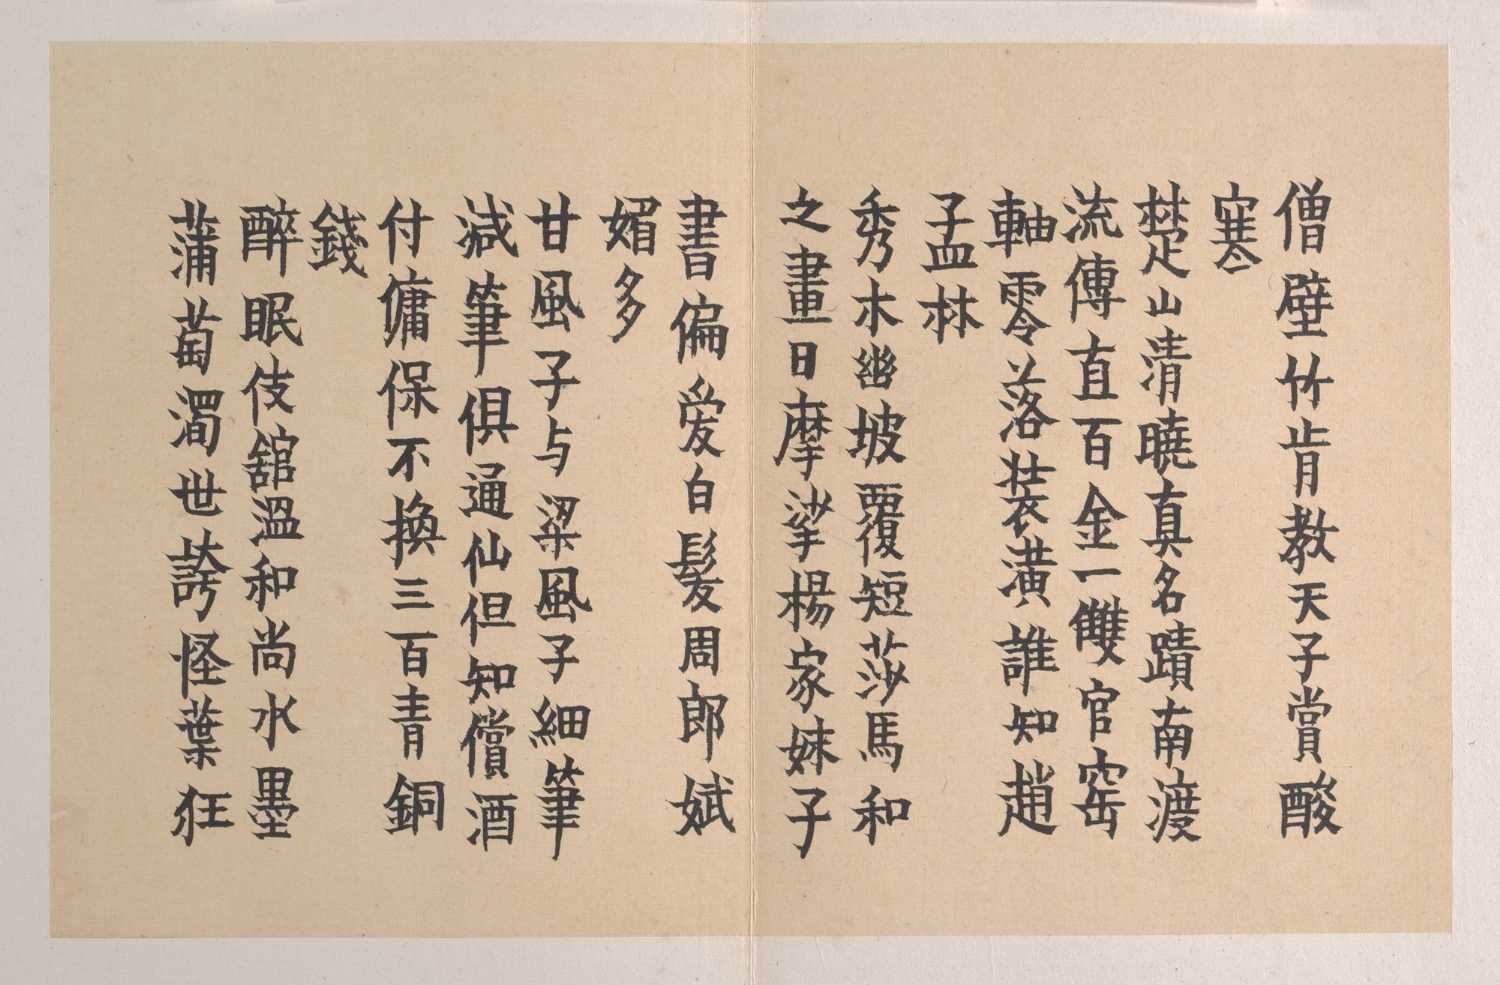 僧壁竹肯教天子賞酸
寒
楚山清曉真名蹟南渡
流傳直百金一雙官窑
軸零落装潢誰知趙
孟林
秀木幽坡覆短莎馬和
之畫日摩挲楊家妹子
書偏爱白髮周郎斌
媚多
甘風子与梁風子細筆
減筆俱通仙但知償酒
付傭保不換三百青銅
錢
醉眠伎舘溫和尚水墨
蒲萄濁世誇怪葉狂